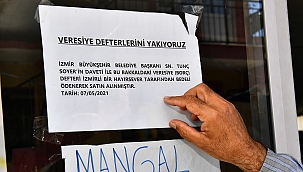 VERESİYE DEFTERLERİNİ YAKIYORUZ
İZMİR BÜYÜKŞEHİR BELEDİYE BAŞKANI SN. TUNÇ
SOYER'İN DAVETİ İLE BU BAKKALDAKİ VERESİYE (BORÇ)
DEFTERİ İZMİRLİ BİR HAYIRSEVER TARAFINDAN BEDELİ
ÖDENEREK SATIN ALINMIŞTIR.
TARİH: 07/05/2021
MANGAL